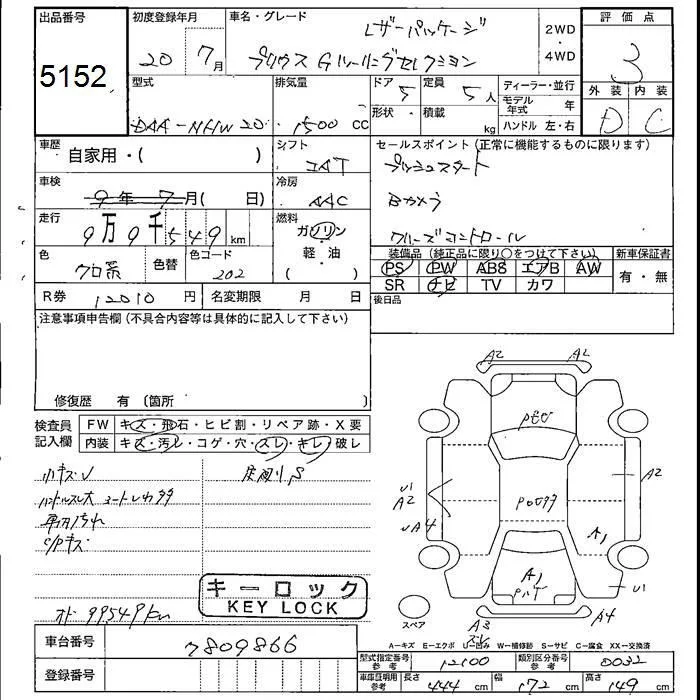 出品番号
5152
初度登録年月
20年 7月
車名・グレード
Lザーパッケージ
プリウス Gツーリングセレクション
2WD
・
4WD
評価点
3
外装 内装
D C
型式
DAA-NHW20
排気量
1500 CC
ドア 5
形状 ・
定員 5人
積載 kg
ディーラー・並行
モデル年式 年
ハンドル 左・右
車歴 自家用・( )
シフト
車検 9年 7月( 日)
冷房 AAC
走行 9万9千549 km
燃料
ガソリン
軽・油
( )
色 クロ系
色替
色コード 202
R券 12010 円
名変期限 月 日
セールスポイント(正常に機能するものに限ります)
プッシュスタート
Bカメラ
クルーズコントロール
装備品(純正品に限り○をつけて下さい)
PS PW ABS エアB AW
SR ナビ TV カワ
新車保証書
有・無
後日品
注意事項申告欄(不具合内容等は具体的に記入して下さい)
修復歴 有 〔箇所 〕
検査員記入欄
FW キズ・飛石・ヒビ割・リペア跡・X要
内装 キズ・汚レ・コゲ・穴・スレ・キレ・破レ
小キズ
ハンドルスレ大
車内汚れ
C/Pキズ
下廻りS
オド 99549km
キーロック
KEY LOCK
A2 A2
A2
U1
A2
A4
A1
A1
U1
A3
スレ
A4
スペア
A=キズ E=エクボ U=凹み W=補修跡 S=サビ C=腐食 XX=交換済
車台番号 7809866
登録番号
型式指定番号 参考 12100
類別区分番号 参考 0032
車庫証明用 参考
長さ 444 cm
幅 172 cm
高さ 149 cm